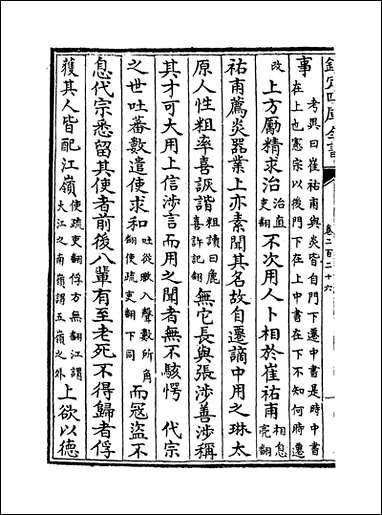 欽定四庫全書 卷二百二十六
事考異曰崔祐甫與炎皆自門下遷中書是時中書在上也憲宗以後門下在上中書在下不知何時遷
改上方勵精求治治直吏翻不次用人卜相於崔祐甫相息亮翻
祐甫薦炎器業上亦素聞其名故自遷謫中用之琳太
原人性粗率喜詼諧粗讀曰麤喜許記翻無它長與張涉善涉稱
其才可大用上信涉言而用之聞者無不駭愕 代宗
之世吐蕃數遣使求和吐從暾入聲數所角翻使疏吏翻下同而冦盗不
息代宗悉留其使者前後八輩有至老死不得歸者俘
獲其人皆配江嶺使疏吏翻俘方無翻江謂大江之南嶺謂五嶺之外上欲以德